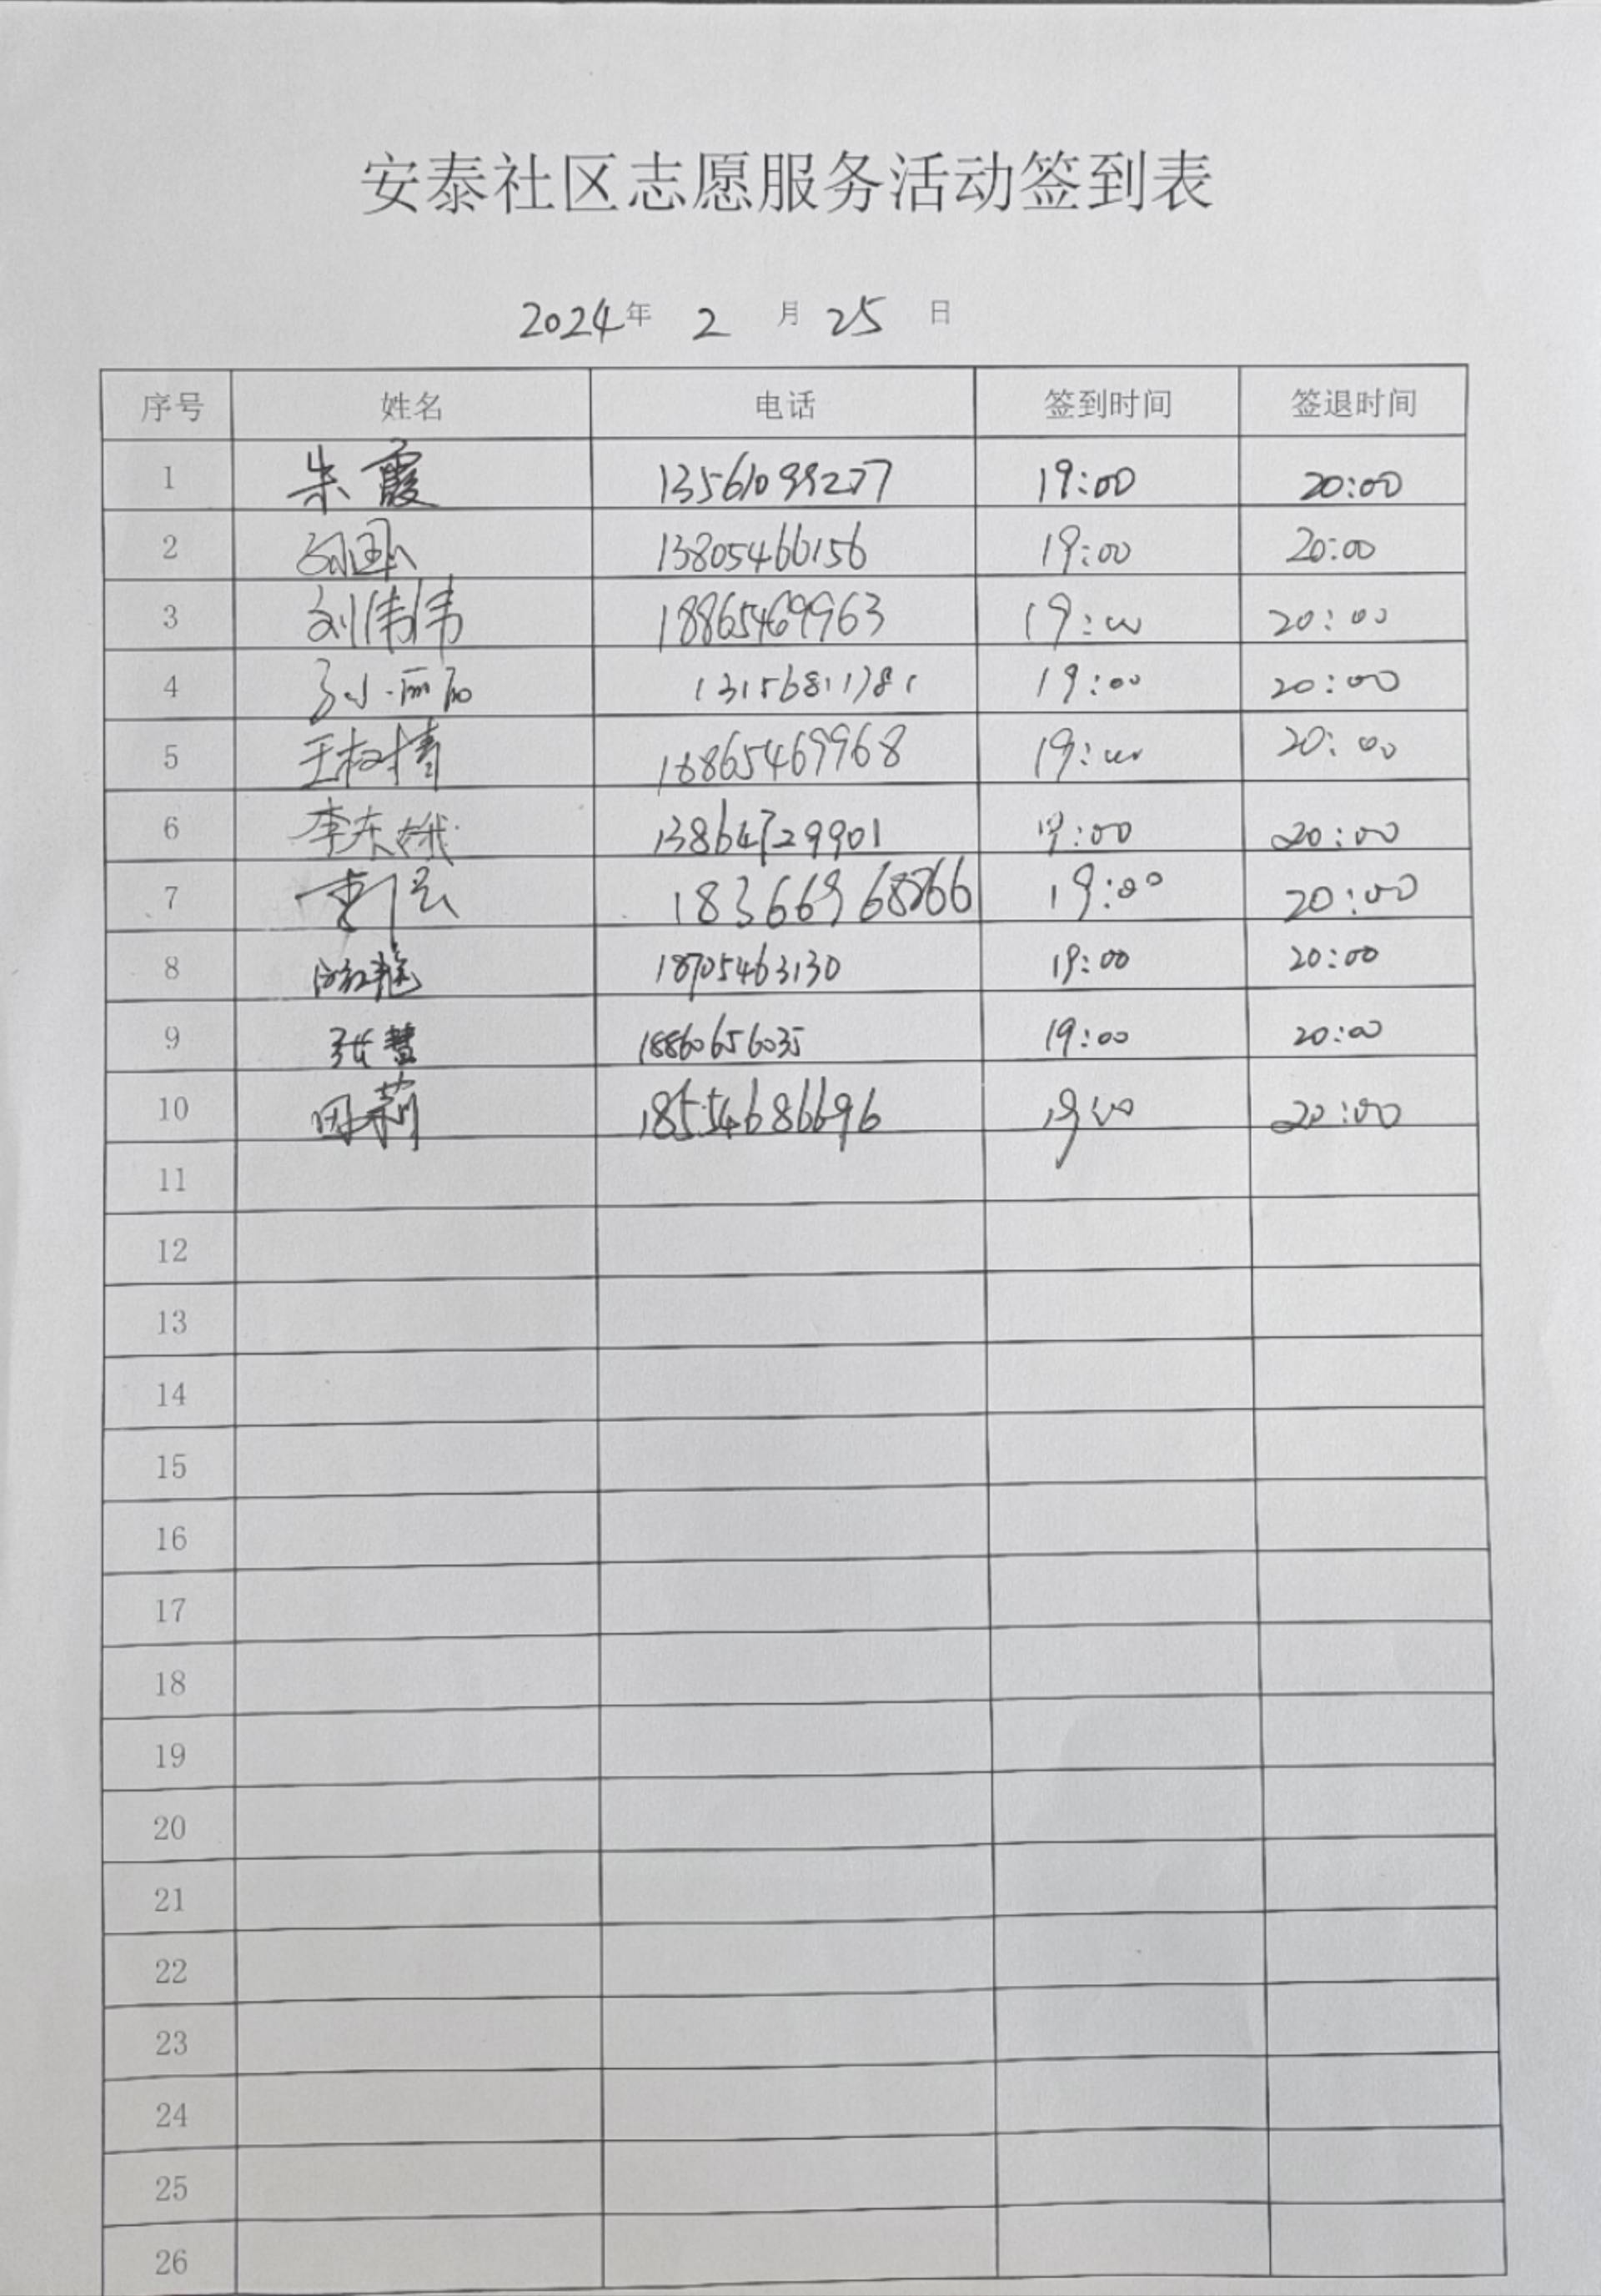 安泰社区志愿服务活动签到表
2024年 2 月 25 日
序号 姓名 电话 签到时间 签退时间
1 朱霞 13561099277 19:00 20:00
2 13805466156 19:00 20:00
3 刘伟伟 18865469963 19:00 20:00
4 13156811781 19:00 20:00
5 18865469968 19:00 20:00
6 李东娥 13864729901 19:00 20:00
7 19:00 20:00
8 18705463130 19:00 20:00
9 张慧 18860656035 19:00 20:00
10 田莉 18554686696 19:00 20:00
11
12
13
14
15
16
17
18
19
20
21
22
23
24
25
26